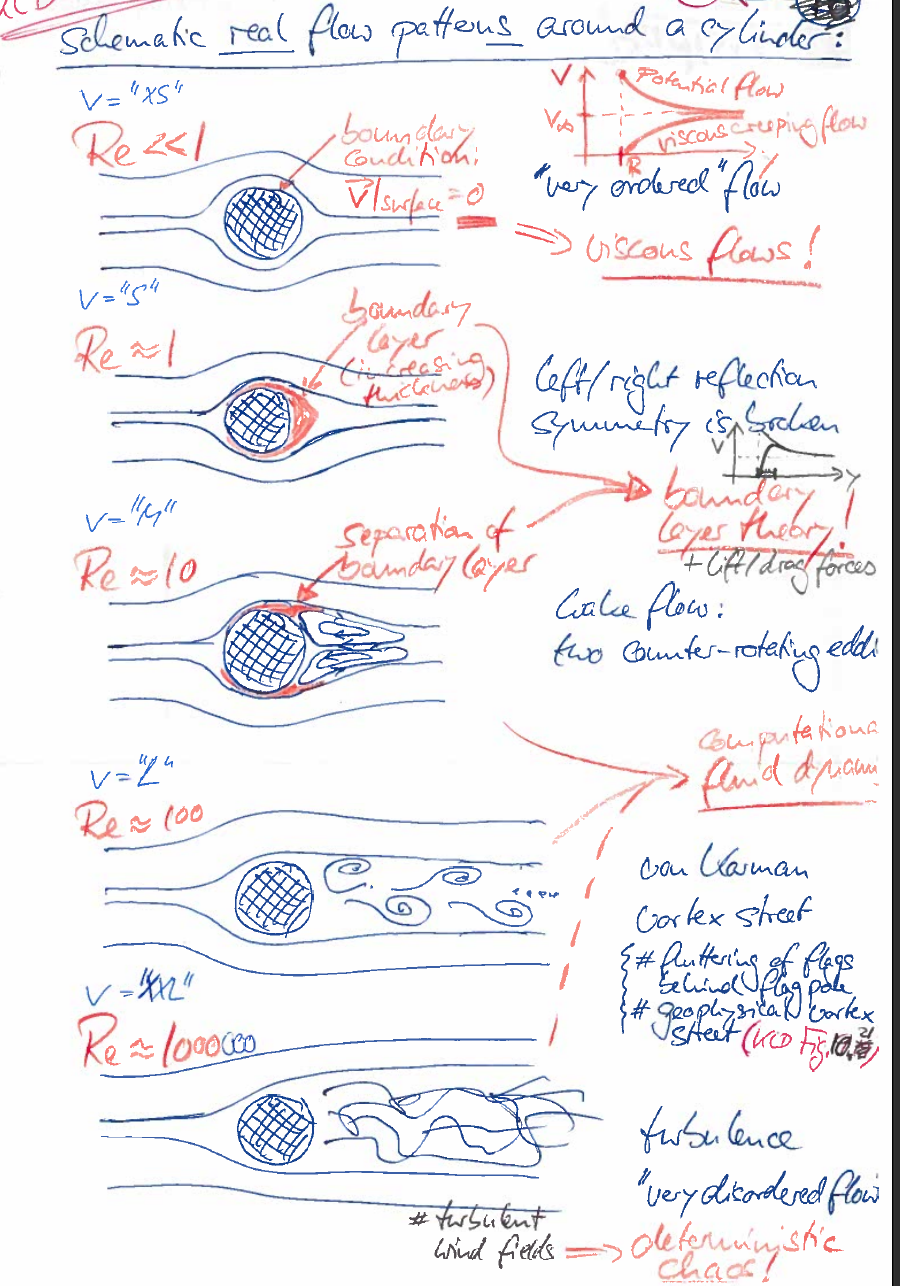 Schematic real flow patterns around a cylinder:
V = "XS"
Re << 1
boundary
condition:
V|surface = 0
V
V∞
Potential flow
viscous creeping flow
R
y
"very ordered" flow
=> viscous flows!
V = "S"
Re ≈ 1
boundary
layer
(increasing
thickness)
left/right reflection
symmetry is broken
V
y
boundary
layer theory!
+ lift/drag forces
V = "M"
Re ≈ 10
separation of
boundary layer
wake flow:
two counter-rotating eddi
computationa
fluid dynam
V = "L"
Re ≈ 100
von Karman
vortex street
# fluttering of flags
behind flag pole
# geophysical vortex
street (KCD Fig. 10.21)
V = "XXL"
Re ≈ 1000000
turbulence
"very disordered flow
# turbulent
wind fields => deterministic
chaos!